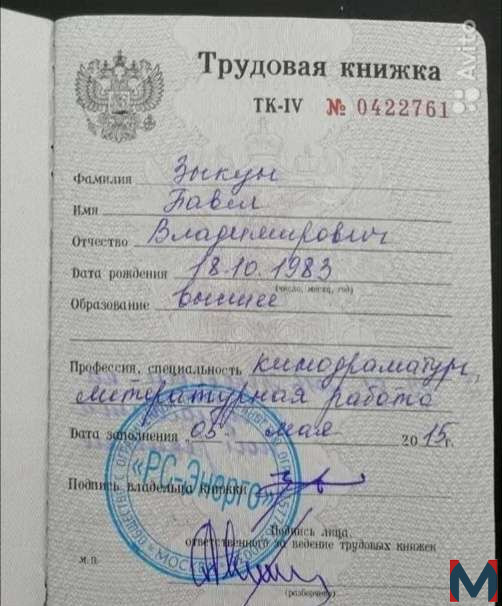 Трудовая книжка
ТК-IV № 0422761
Фамилия Зыкун
Имя Павел
Отчество Владимирович
Дата рождения 18.10.1983
(число, месяц, год)
Образование высшее
Профессия, специальность кинодраматург,
литературная работа
Дата заполнения 05 мая 2015г.
Подпись владельца книжки
«РС-Энерго»
МОСКВА
Подпись лица,
ответственного за ведение трудовых книжек
м.п.
(разборчиво)
Avito
М